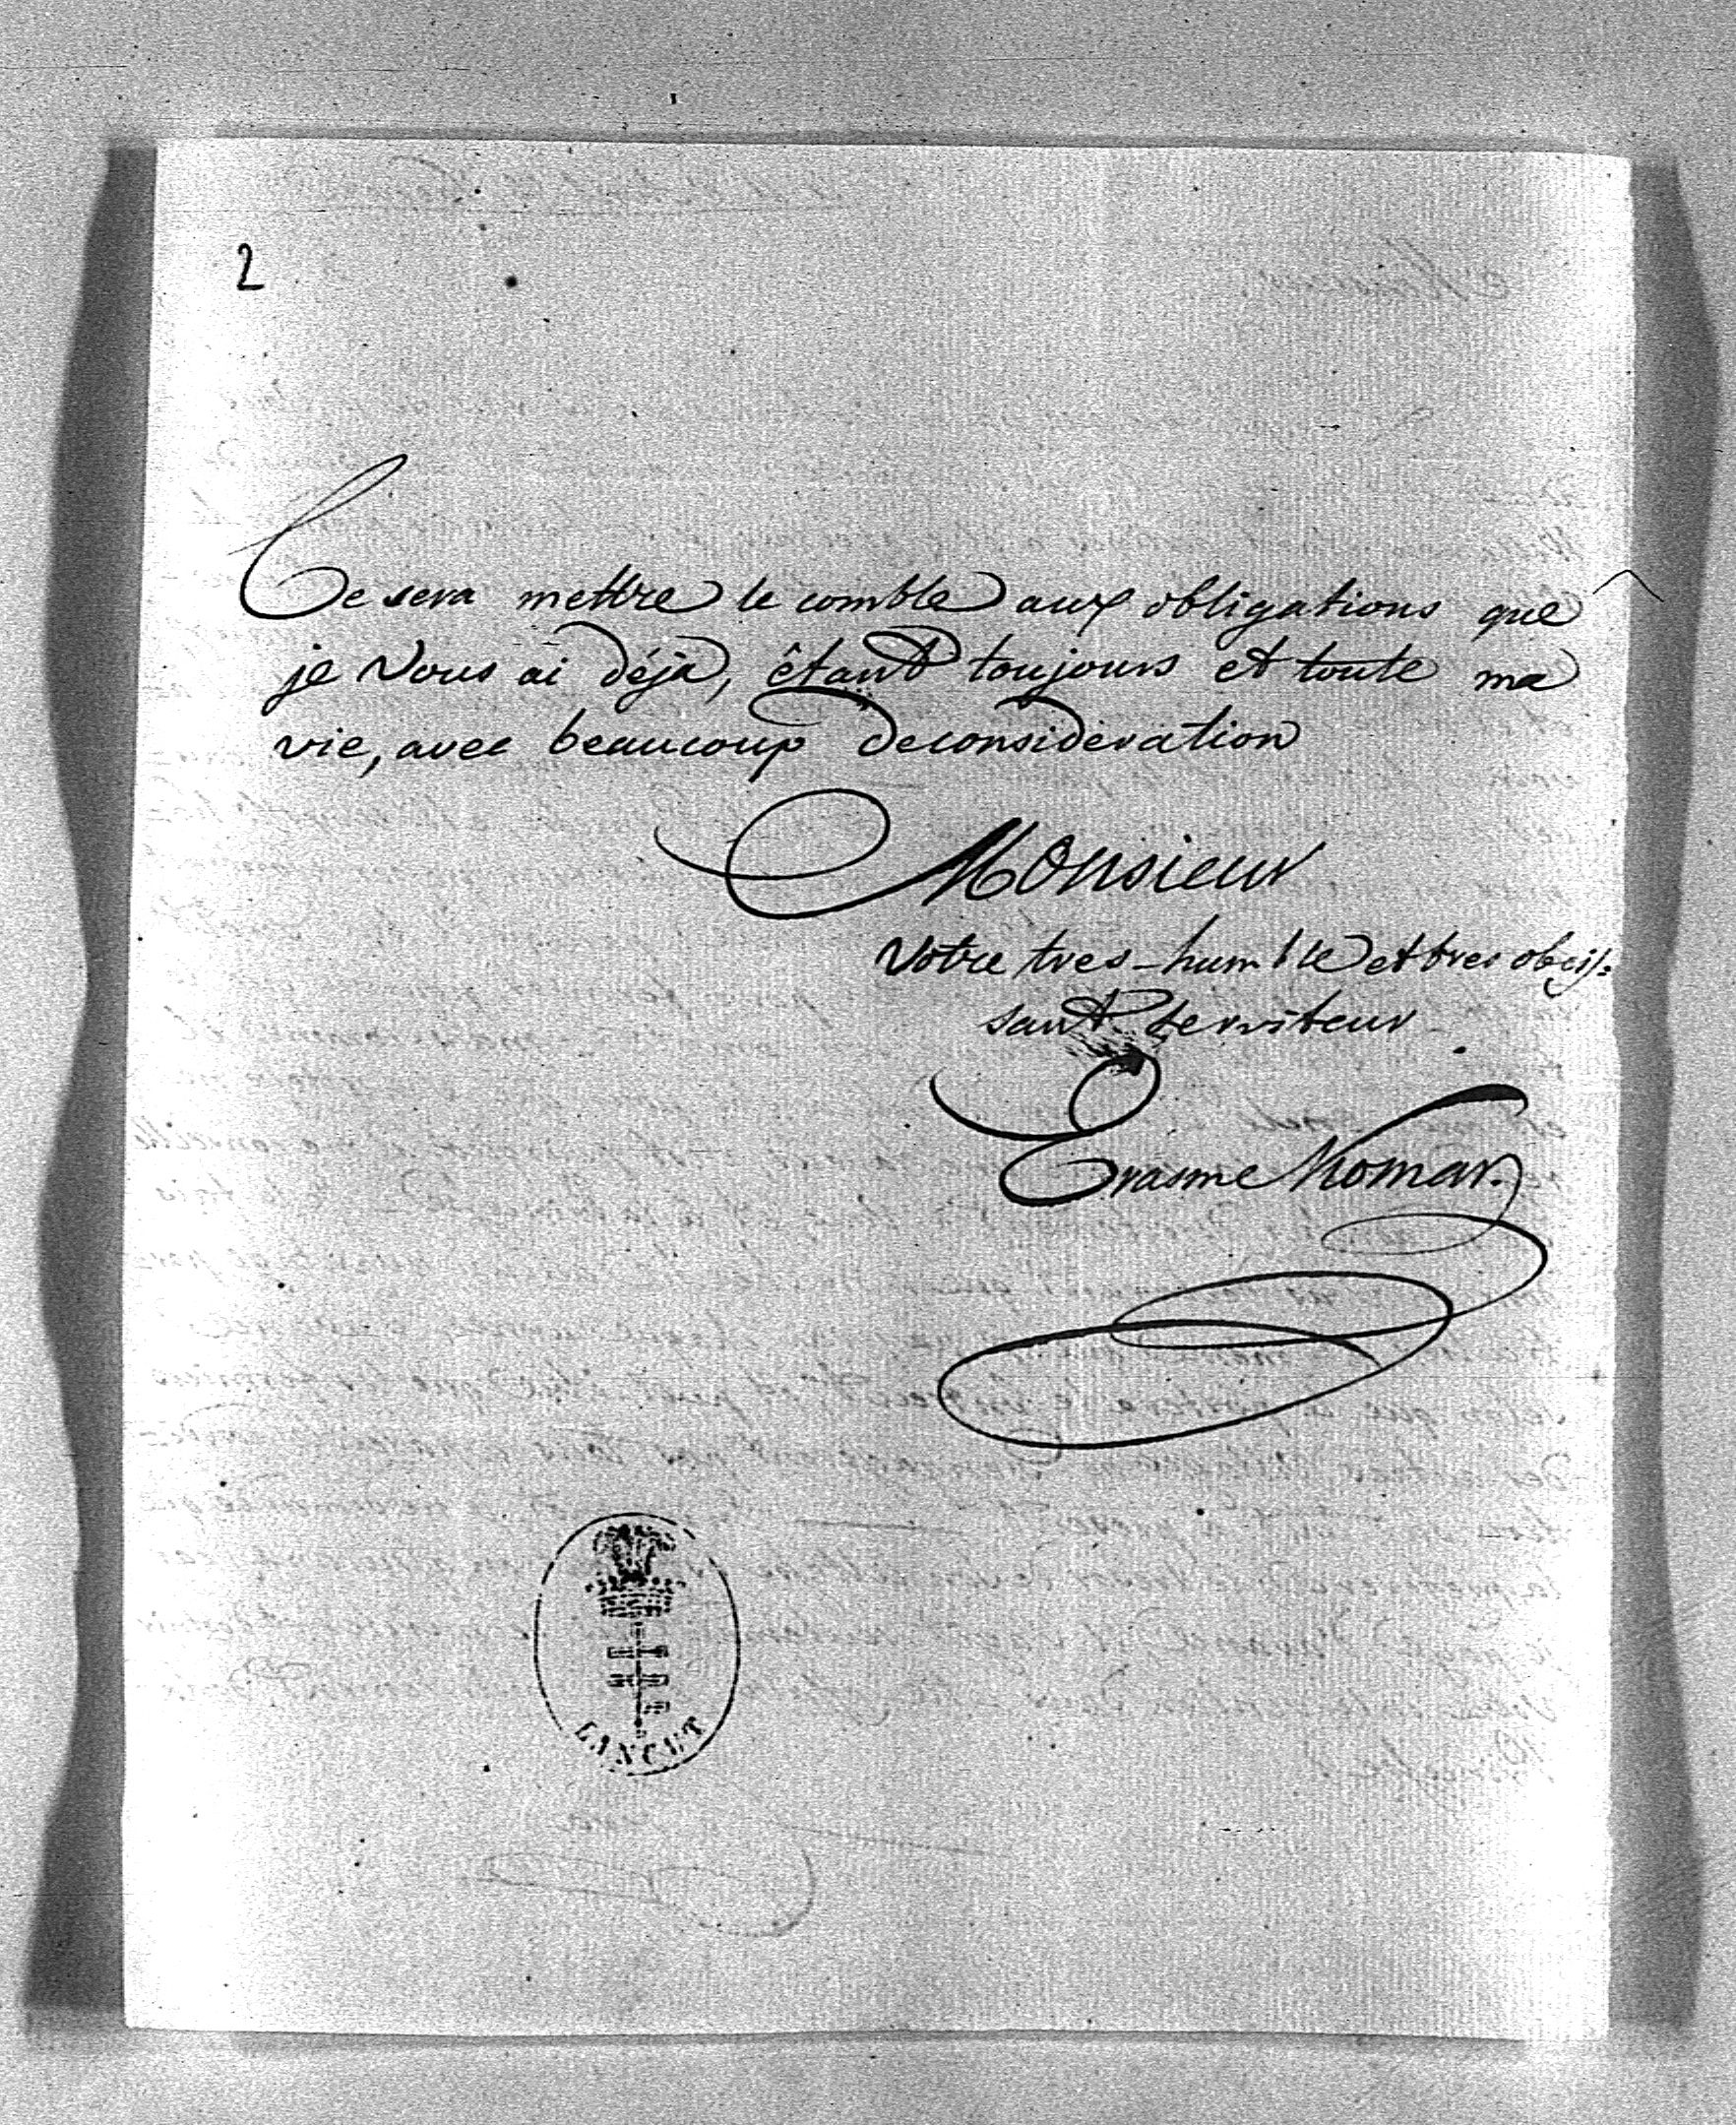 2
Ce sera mettre le comble aux obligations que
je Vous ai déjà, étant toujours et toute ma
vie, avec beaucoup de consideration
Monsieur
Votre tres-humble et tres obeis:
sant Serviteur
Erasme Komar.
LANCUT